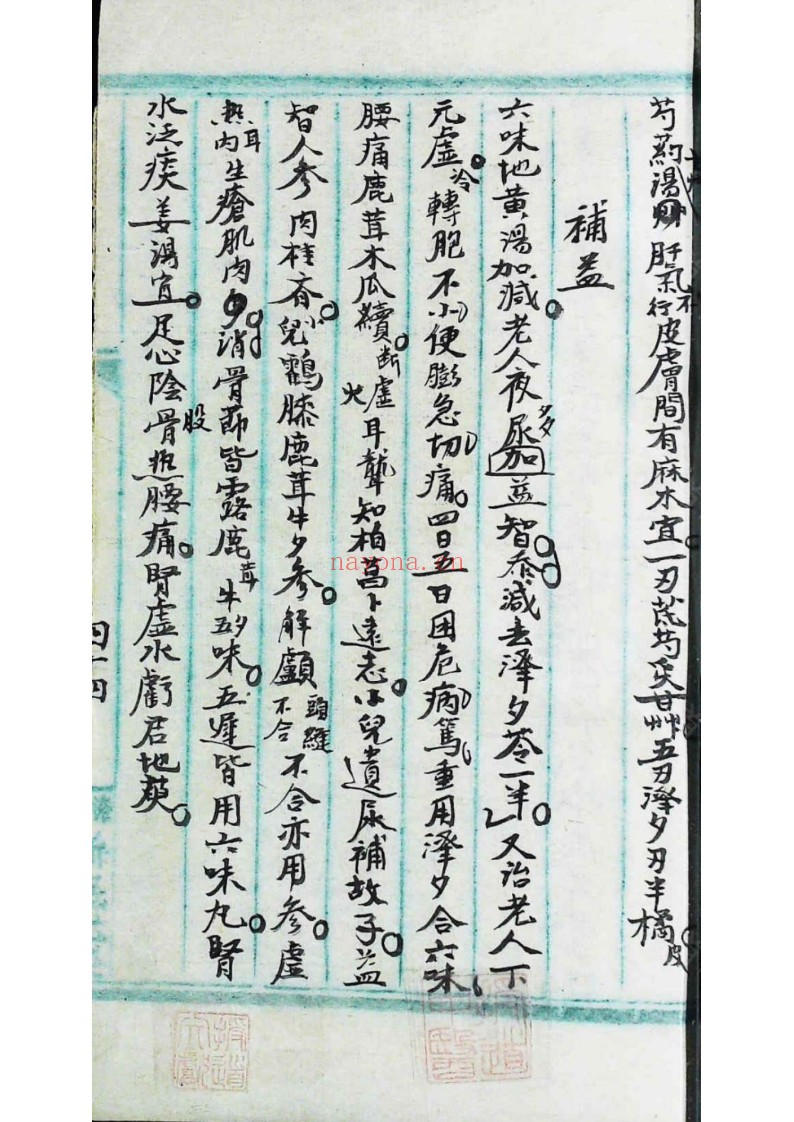 芍葯湯 肝氣不行皮膚間有麻木宜一刃芪芍炙甘艸五刃澤夕刃半橘皮
補益
六味地黄湯加减老人夜尿多加益智減去澤夕苓一半又治老人下
元虛冷轉胞不小便膨急切痛四日五日困危病篤重用澤夕合六味
腰痛鹿茸木瓜續断虛火耳聾知柏菖卜遠志小兒遺尿補故子益
智人參肉桂斉小兒鶴膝鹿茸牛夕參解顱頭縫不合不合亦用參虛
熱耳内生瘡肌肉消骨節皆露鹿茸牛夕五味五遲皆用六味丸腎
水泛痰姜湯宜足心陰股骨热腰痛腎虛水虧君地萸
四十四
nayona.cn